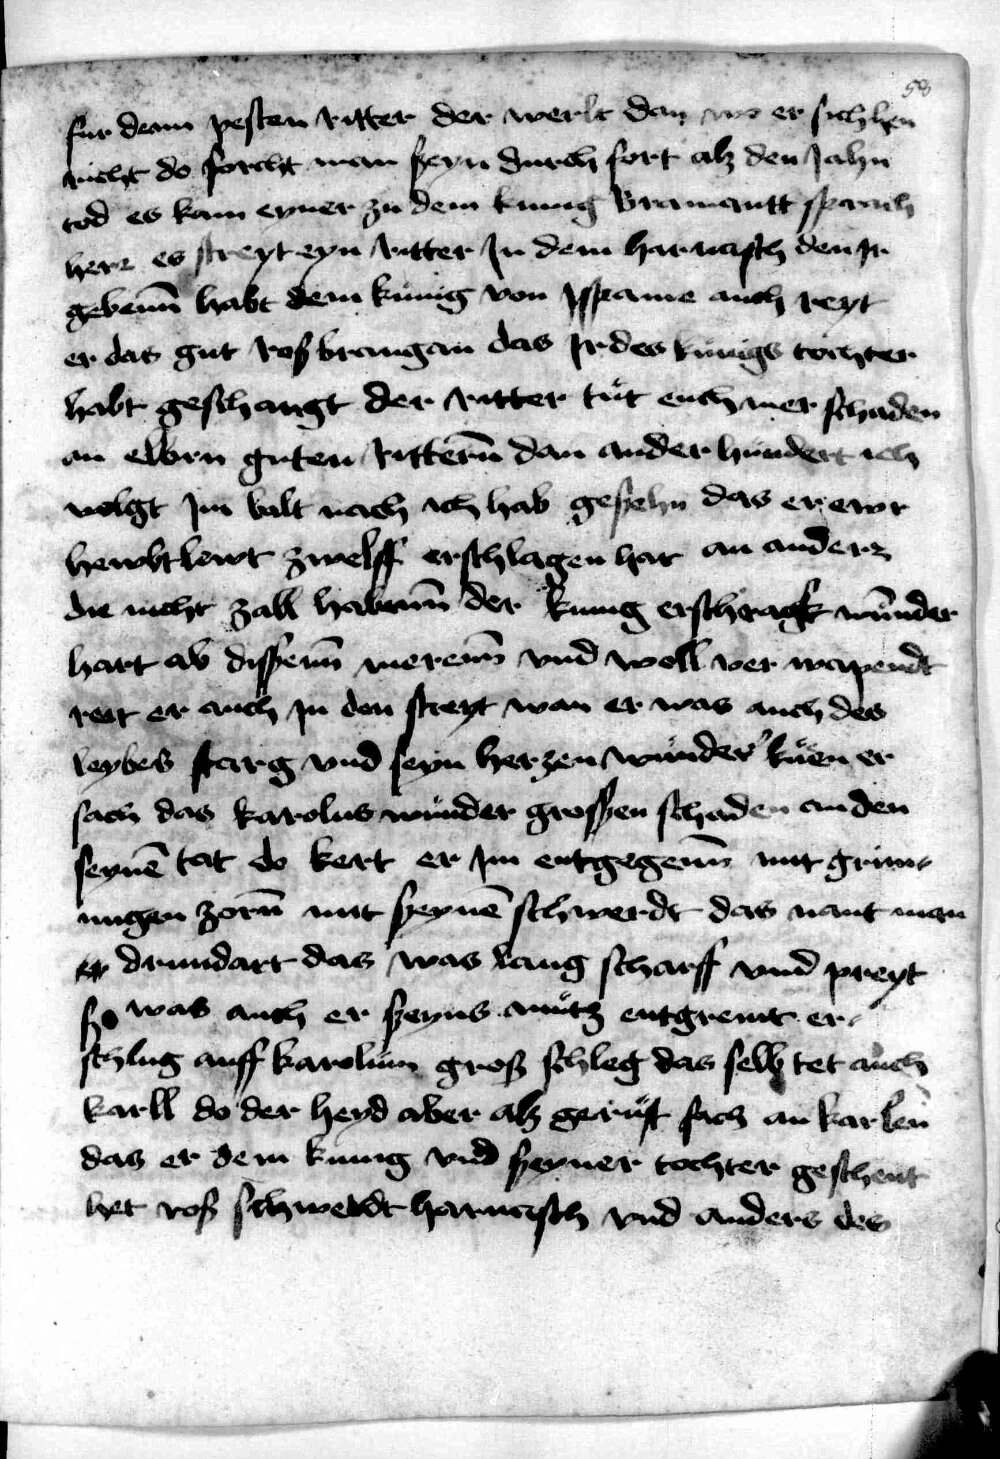 58
fur deam pesten ritter der werlt dan wo er sich hen
richt do forcht man seyn durch fort alz den Jahn
tod es kam eyner zu dem kunig Bramantt sprach
here es streyt eyn ritter In dem harnasch den Ir
gebenn habt dem kunig von Ispanie auch reyt
er das gut roß brangan das Ir des kunigs tochter
habt geschangt der ritter tut euch mer schaden
an ewrn guten rittern dan ander hundert ich
volgt Im balt nach ich hab gesehn das er ewr
hewbtlewt zwelff erschlagen hat an anders
die nicht zall habenn der kunig erschragk wunder
hart ab dissenn merenn vnd woll ver wapendt
reit er auch In den streyt wan er was auch des
leybes starg vnd seyn herzen wunder kuen er
sach das karolus wunder grossen schaden an den
seynē tet do kert er Im entgegenn mit grim
migen zorn mit seynē schwerdt das nant man
drundart das was lang scharff vnd preyt
so was auch er seyns mutz entgremt er
schlug auff karolum groß schleg das selb tet auch
karll do der heyd aber alz gerust sach an karlen
das er dem kunig vnd seyner tochter geschent
het roß schwerdt harnasch vnd anders des